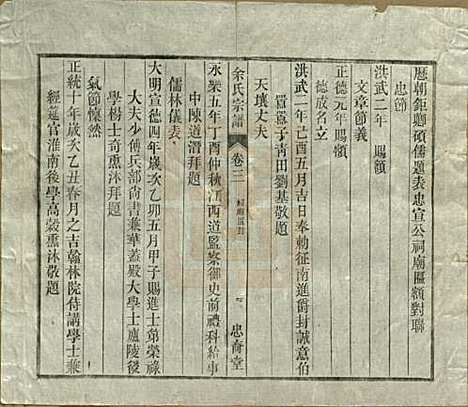 歷朝鉅聽碩儒題表忠宣公祠廟匾額對聯
忠節
洪武二年　賜額
文章節義
正德元年賜額
德成名立
洪武二年己酉五月吉日奉勅征南進爵封誠意伯
囂囂子青田劉基敬題
天壤丈夫
余氏宗譜　卷三　忠宣堂
永樂五年丁酉仲秋江西道監察御史前禮科給事
中陳道潛拜題
儒林儀表
大明宣德四年歲次乙卯五月甲子賜進士第榮祿
大夫少傅兵部尚書兼華蓋殿大學士廬陵後
學楊士奇熏沐拜題
氣節懍然
正統十年歲次乙丑春月之吉翰林院侍講學士兼
經筵官淮南後學高穀熏沐敬題